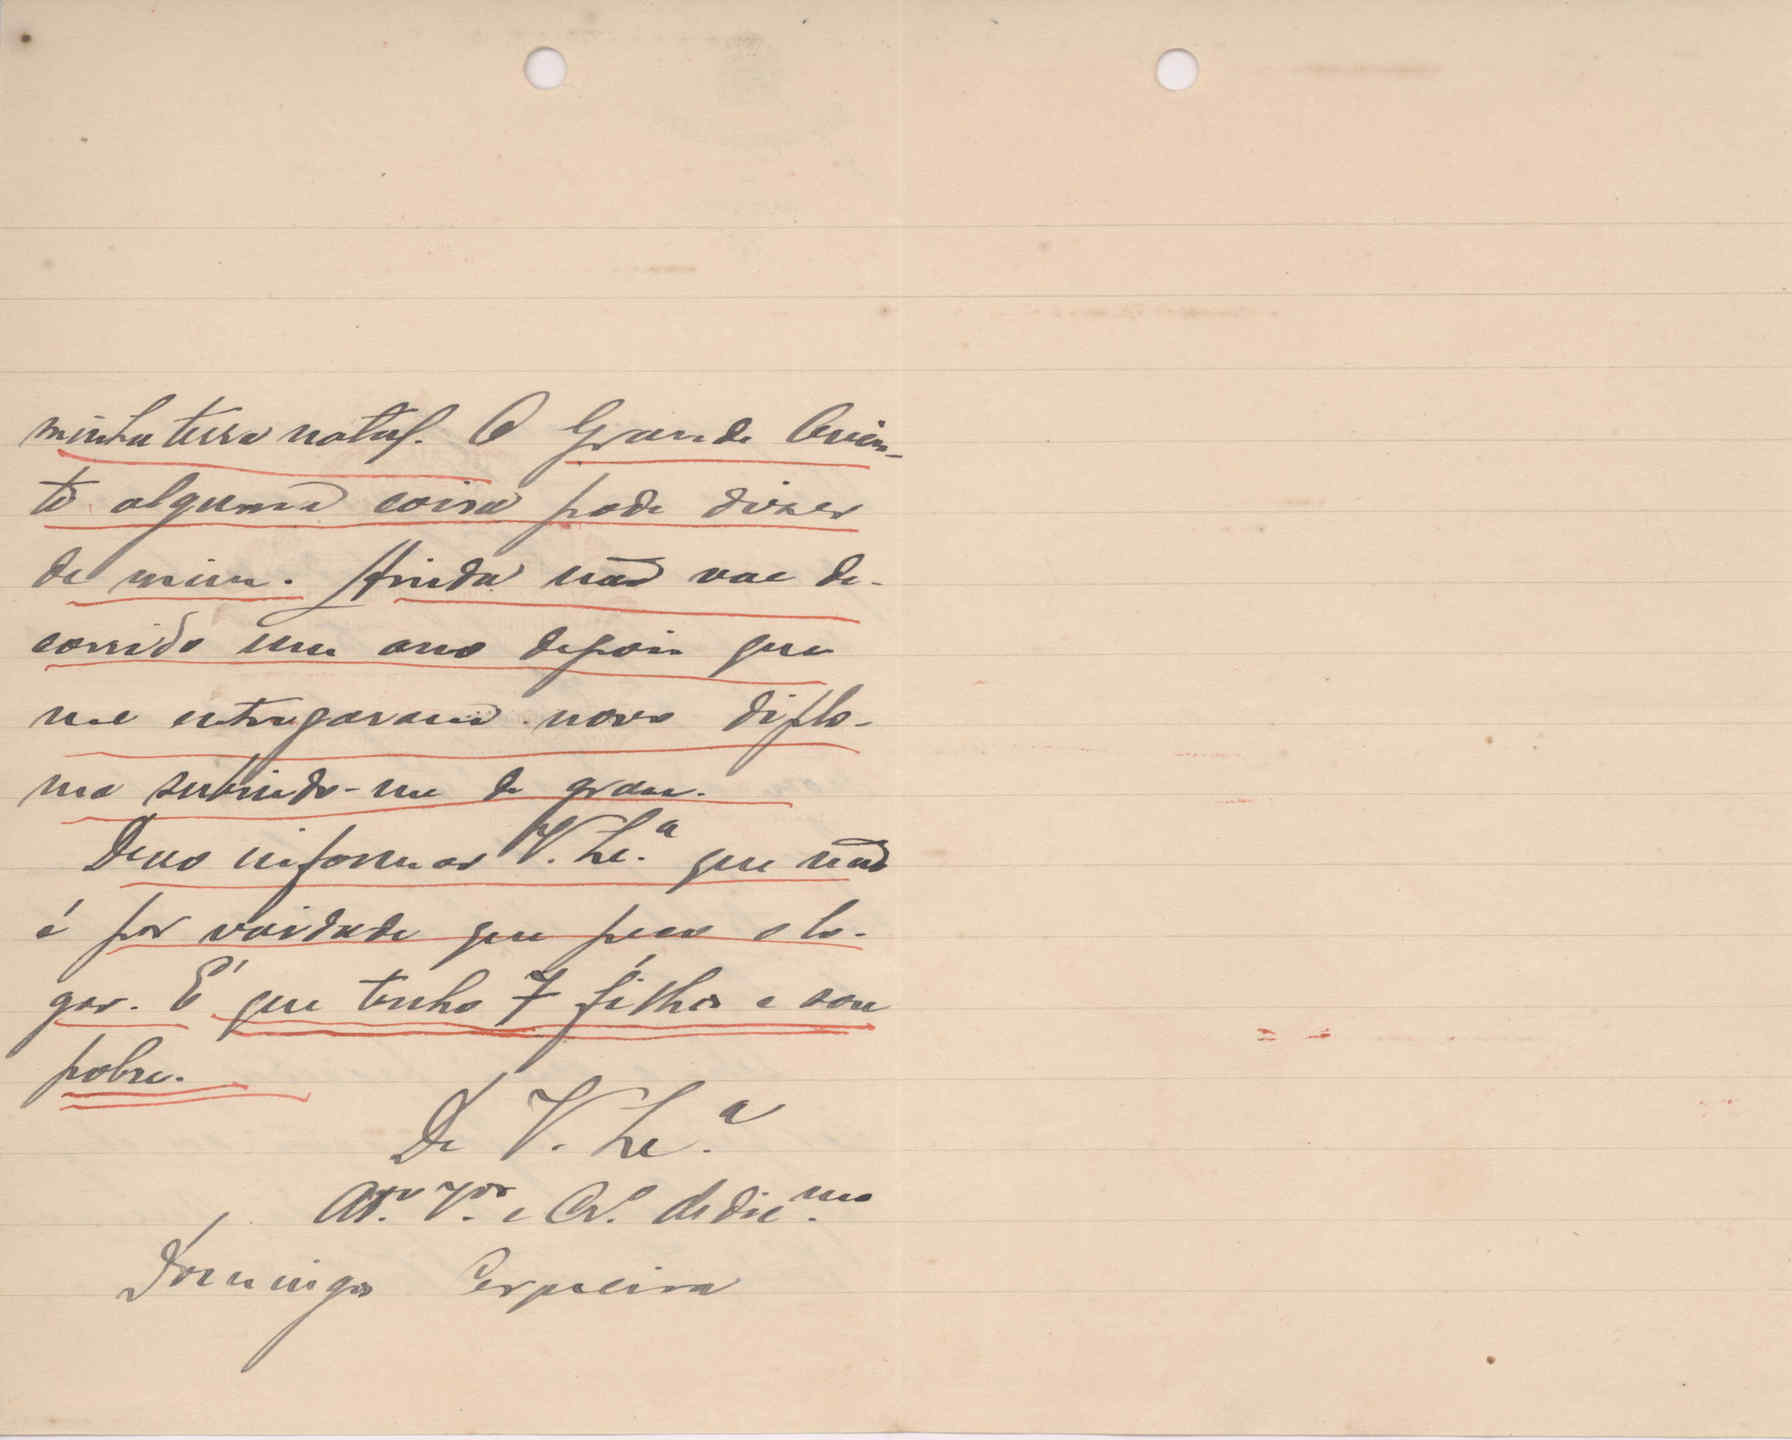 minha terra natal. O Grande Orien-
te alguma coisa pode dizer
de mim. Ainda não vae de-
corrido um ano depois que
me entregaram novo diplo-
ma subindo-me de grau.
Devo informar V. Ex.ª que não
é por vaidade que peço o lo-
gar. É que tenho 7 filhos e sou
pobre.
De V. Ex.ª
At.º V.or e Cr.º dedic.mo
Domingos Cerqueira